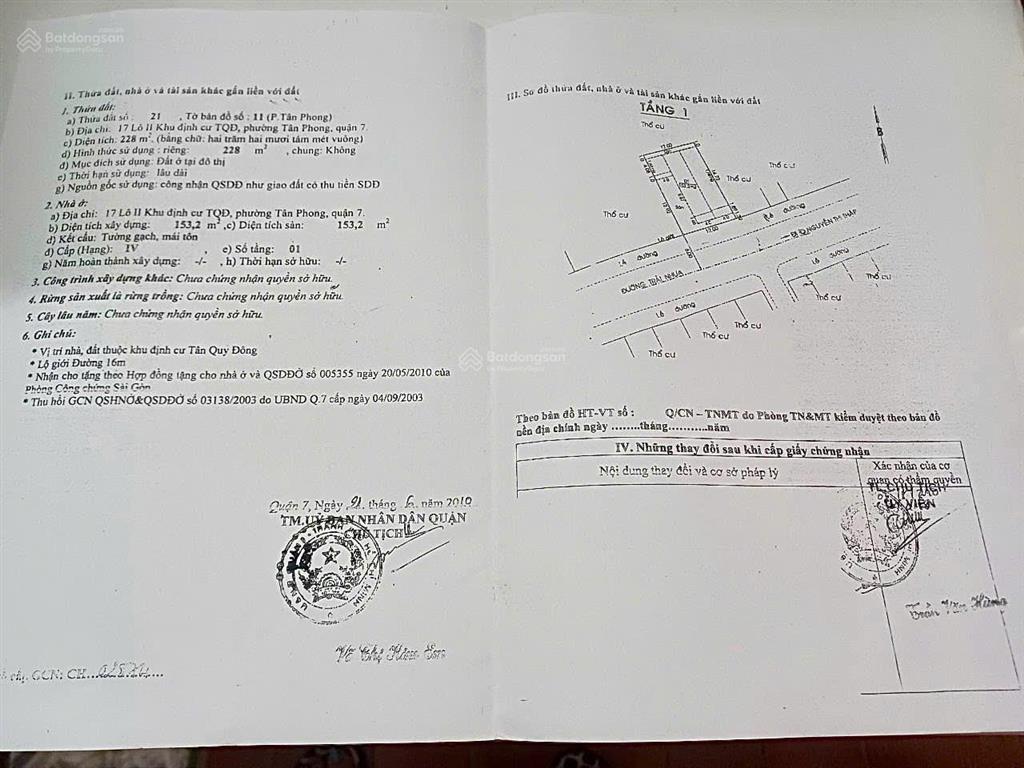 Batdongsan
by PropertyGuru
II. Thửa đất, nhà ở và tài sản khác gắn liền với đất
1. Thửa đất:
a) Thửa đất số : 21 , Tờ bản đồ số : 11 (P.Tân Phong)
b) Địa chỉ: 17 Lô II Khu định cư TQĐ, phường Tân Phong, quận 7.
c) Diện tích: 228 m². (bằng chữ: hai trăm hai mươi tám mét vuông)
d) Hình thức sử dụng : riêng: 228 m² , chung: Không
đ) Mục đích sử dụng: Đất ở tại đô thị
e) Thời hạn sử dụng: lâu dài
g) Nguồn gốc sử dụng: công nhận QSDĐ như giao đất có thu tiền SDĐ
2. Nhà ở:
a) Địa chỉ: 17 Lô II Khu định cư TQĐ, phường Tân Phong, quận 7.
b) Diện tích xây dựng: 153,2 m² ,c) Diện tích sàn: 153,2 m²
d) Kết cấu: Tường gạch, mái tôn
đ) Cấp (Hạng): IV , e) Số tầng: 01
g) Năm hoàn thành xây dựng: -/- , h) Thời hạn sở hữu: -/-
3. Công trình xây dựng khác: Chưa chứng nhận quyền sở hữu.
4. Rừng sản xuất là rừng trồng: Chưa chứng nhận quyền sở hữu.
5. Cây lâu năm: Chưa chứng nhận quyền sở hữu.
6. Ghi chú:
• Vị trí nhà, đất thuộc khu định cư Tân Quy Đông
• Lộ giới Đường 16m
• Nhận cho tặng theo Hợp đồng tặng cho nhà ở và QSDĐỞ số 005355 ngày 20/05/2010 của
Phòng Công chứng Sài Gòn
• Thu hồi GCN QSHNỞ&QSDĐỞ số 03138/2003 do UBND Q.7 cấp ngày 04/09/2003
Quận 7, Ngày 21 tháng 6 năm 2010
TM.UỶ BAN NHÂN DÂN QUẬN
CHỦ TỊCH
GCN: CH
III. Sơ đồ thửa đất, nhà ở và tài sản khác gắn liền với đất
TẦNG 1
Thổ cư
B
Thổ cư
Thổ cư
Thổ cư
17.00
Lề đường
12.00
ĐI Đ.NGUYỄN THỊ THẬP
Lề đường
ĐƯỜNG TRẢI NHỰA
Lề đường
Lề đường
Thổ cư
Thổ cư
Thổ cư
Thổ cư
Batdongsan
by PropertyGuru
Theo bản đồ HT-VT số : Q/CN – TNMT do Phòng TN&MT kiểm duyệt theo bản đồ
nền địa chính ngày ........tháng...........năm
IV. Những thay đổi sau khi cấp giấy chứng nhận
Nội dung thay đổi và cơ sở pháp lý
Xác nhận của cơ
quan có thẩm quyền
TL. CHỦ TỊCH
ỦY VIÊN
Trần Văn Hùng